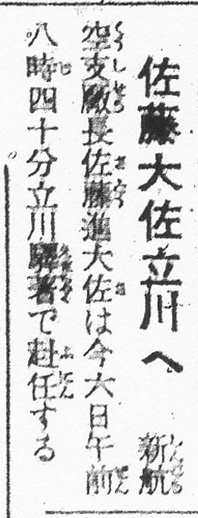 佐藤大佐立川へ
新航
空支廠長佐藤進大佐は今六日午前
八時四十分立川驛著で赴任する。